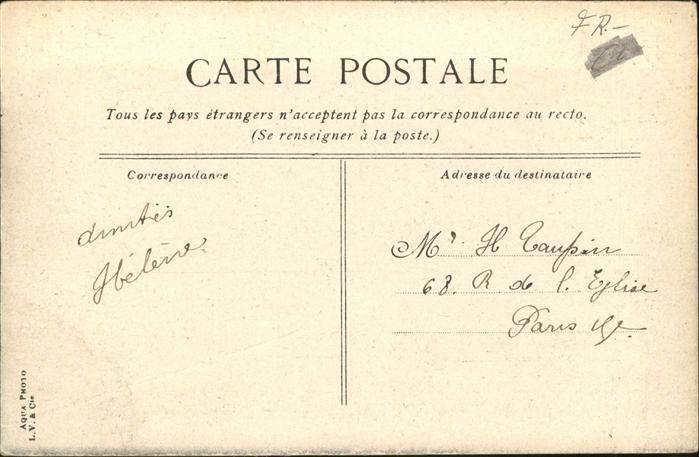 FR.-
CARTE POSTALE
Tous les pays étrangers n'acceptent pas la correspondance au recto.
(Se renseigner à la poste.)
Correspondance
Amitiés
Hélène.
Adresse du destinataire
Mr H Taupin
68. R de l. Eglise
Paris
AQUA PHOTO
L.V. & Cie